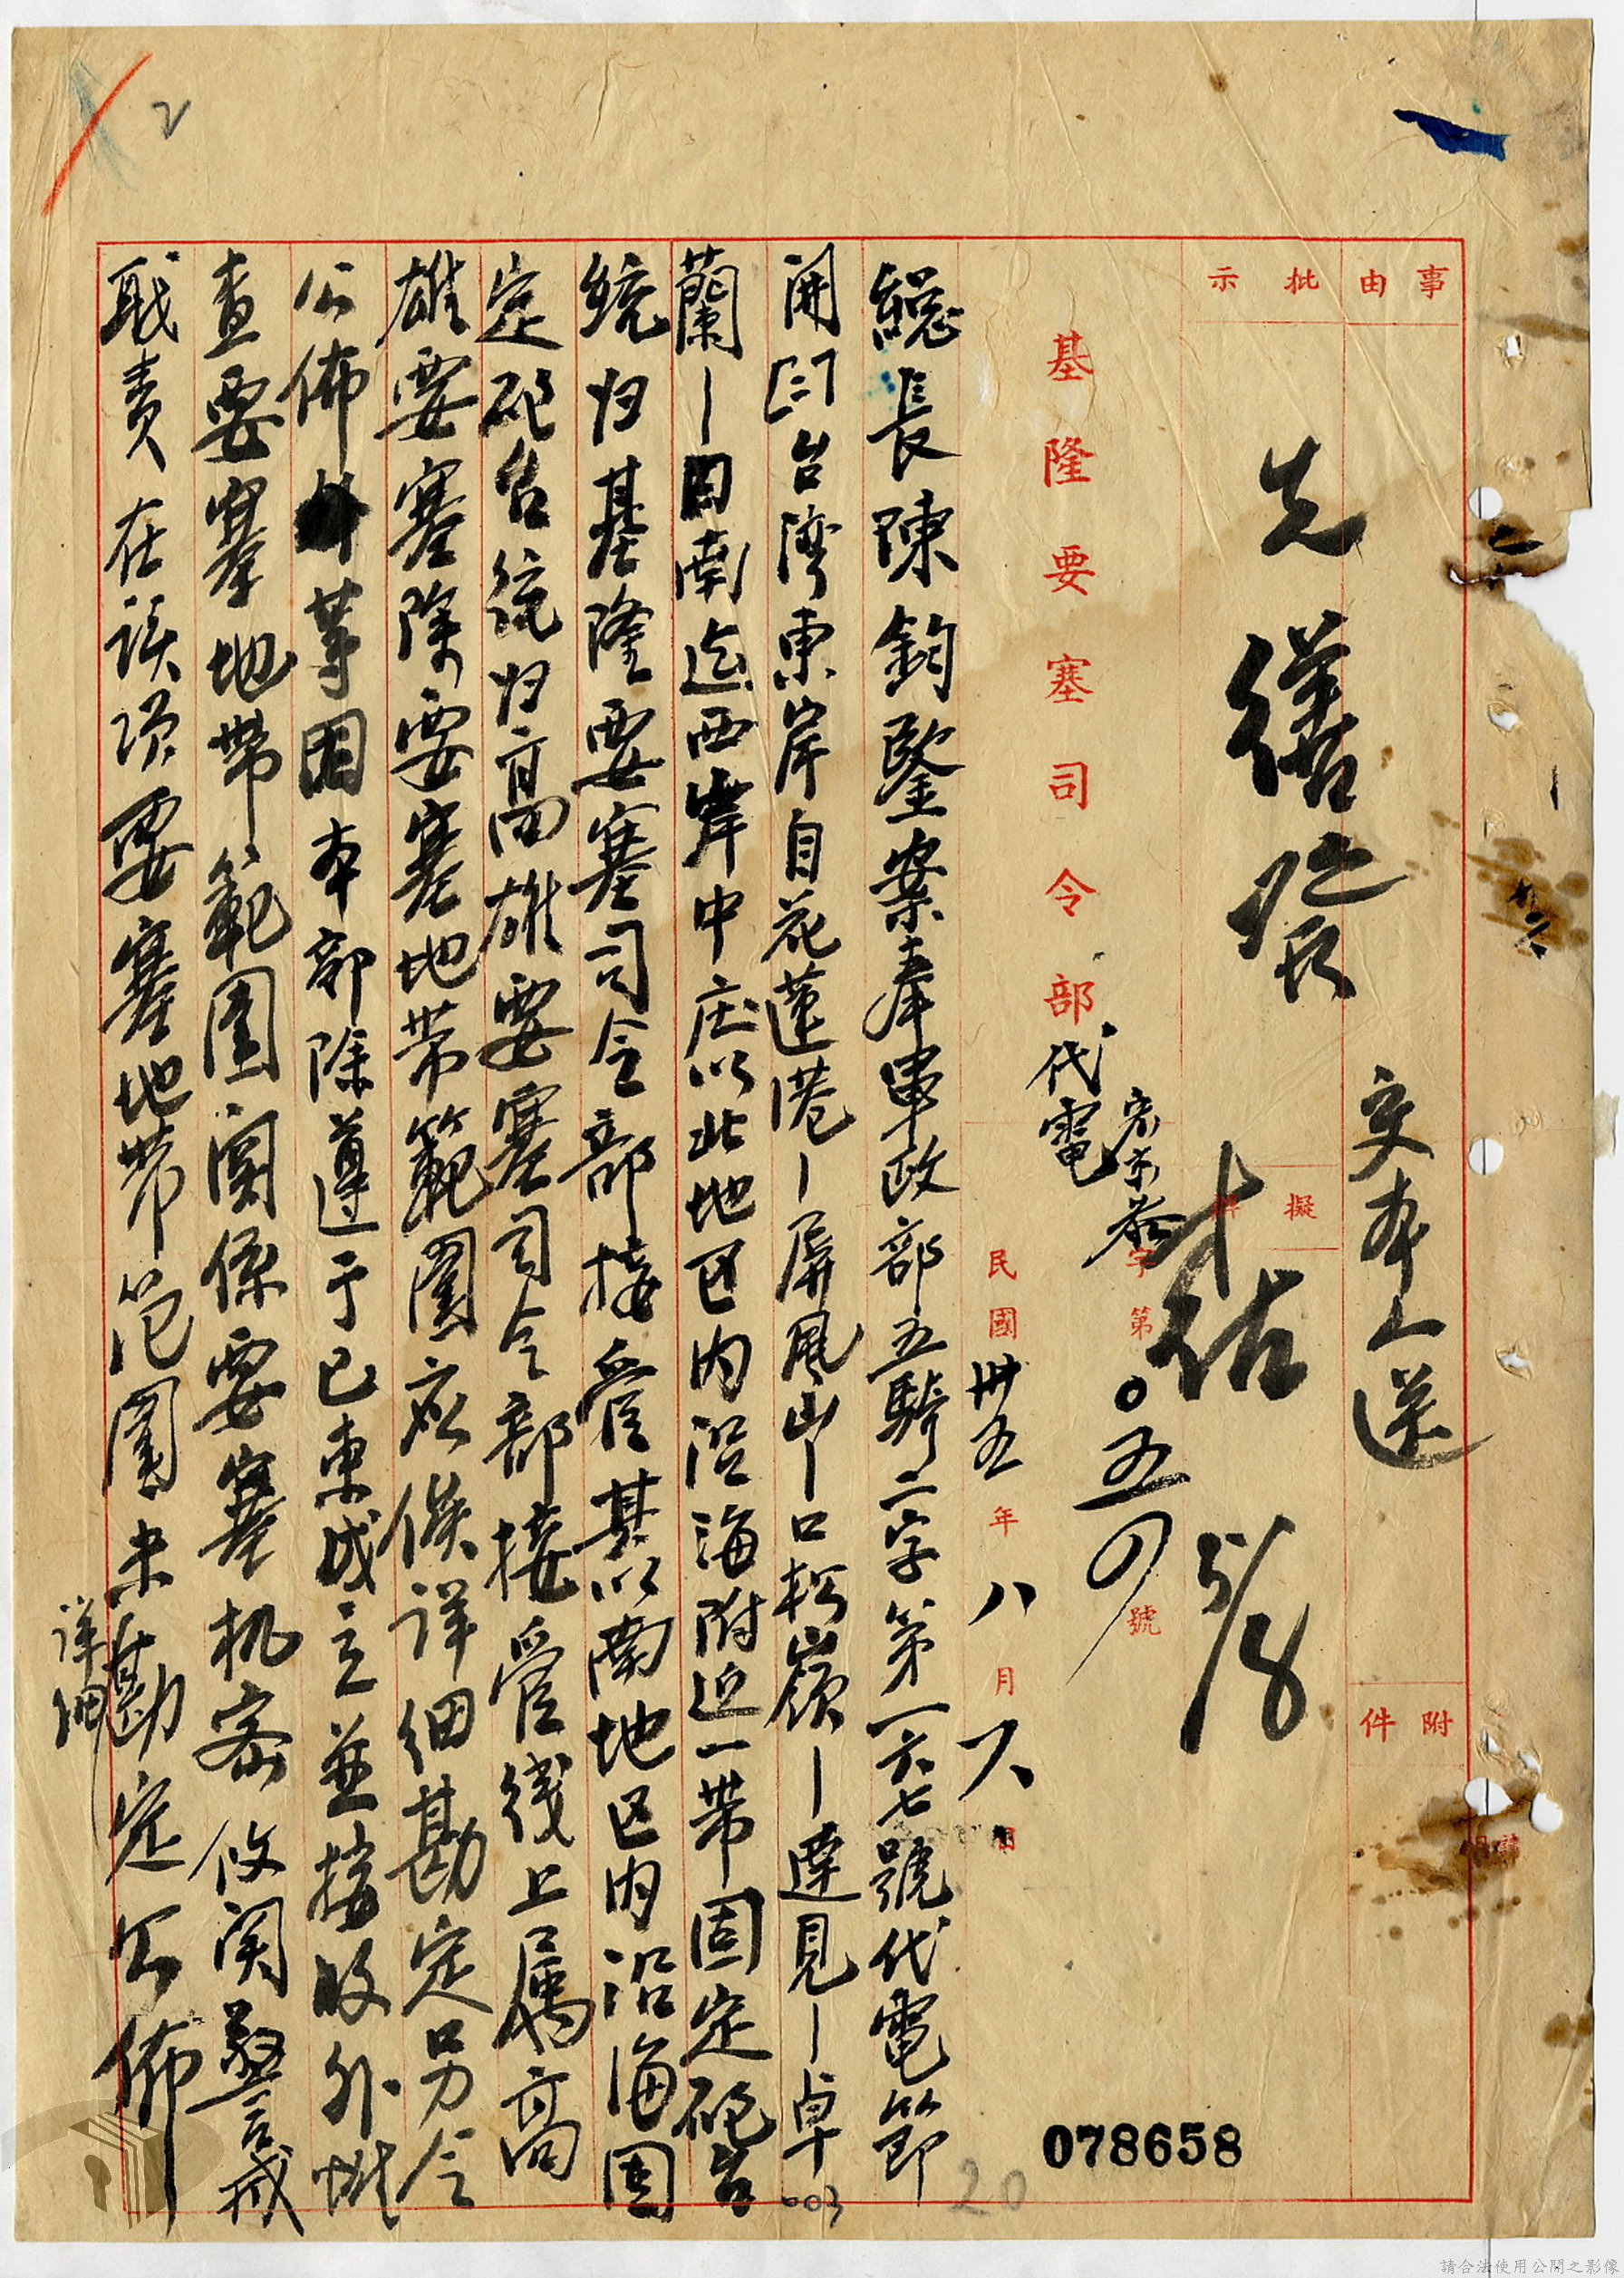 2
事由
批示
擬辦
附件
交本人送
先繕發
祐
5/8
基隆要塞司令部代電
字第〇五四號
民國卅五年八月六日
總長陳鈞鑒案奉軍政部五騎二字第一六七號代電節
開台灣東岸自花蓮港—屏風山—口松嶺—達見—卓
蘭—南迄西岸中庄以北地区内沿海附近一帶固定砲台
統归基隆要塞司令部接管其以南地区内沿海固
定砲台統归高雄要塞司令部接管线上属高
雄要塞除要塞地帶範圍应俟详细勘定另令
公佈外等因本部除遵于已東成立並接收外惟
查要塞地帶範圍関係要塞机密攸関警戒
耿责在该项要塞地带范圍未勘定公佈
详细
078658
20
003
請合法使用公開之影像